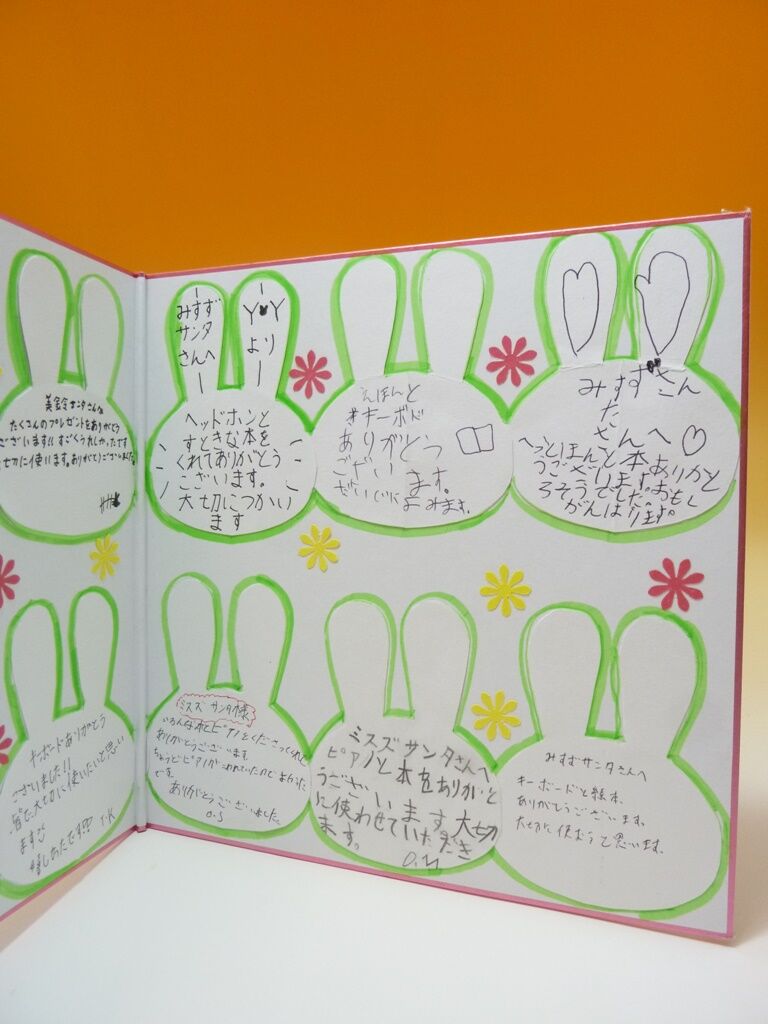 美鈴サンタさん
たくさんのプレゼントをありがとう
ございます!! すごくうれしかったです
大切に使います。ありがとうございました。
みすず
サンタ
さんへ
Y♥Y
より
ヘッドホンと
すときな本を
くれてありがとう
ございます。
大切につかい
ます
えほんと
キーボド
ありがとう
ござい
ます。
よみます。
みすずさん
た
さんへ♡
へっとほんと本ありがと
うございます。おもし
ろそうでした。
がんばります。
キーボードありがとう
ございました!!
皆で大切に使いたいと思い
ます
嬉しかったです!!
T・K
ミスズ サンタ様
いろんな本とピアノをくださってくれて
ありがとうございます
ちょうどピアノがこわれていたのでよかった
です。
ありがとうございました。
O.S
ミスズ サンタさんへ
ピアノと本をありがと
うございます 大切
に使わせていただき
ます。
みすずサンタさんへ
キーボードと絵本、
ありがとうございます。
大切に使おうと思います。